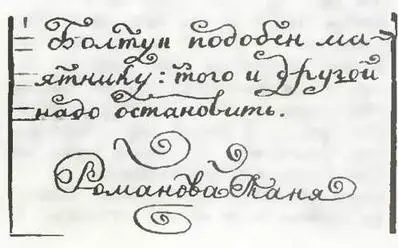 Болтун подобен ма-
ятнику: того и другой
надо остановить.
Романова Таня